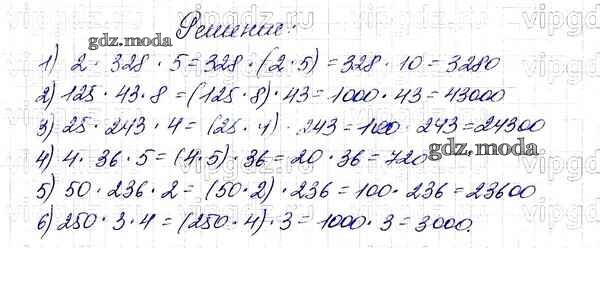 Решение:
gdz.moda
1) 2 · 328 · 5 = 328 · (2 · 5) = 328 · 10 = 3280
2) 125 · 43 · 8 = (125 · 8) · 43 = 1000 · 43 = 43000
3) 25 · 243 · 4 = (25 · 4) · 243 = 100 · 243 = 24300
4) 4 · 36 · 5 = (4 · 5) · 36 = 20 · 36 = 720
gdz.moda
5) 50 · 236 · 2 = (50 · 2) · 236 = 100 · 236 = 23600
6) 250 · 3 · 4 = (250 · 4) · 3 = 1000 · 3 = 3000.
gdz.moda